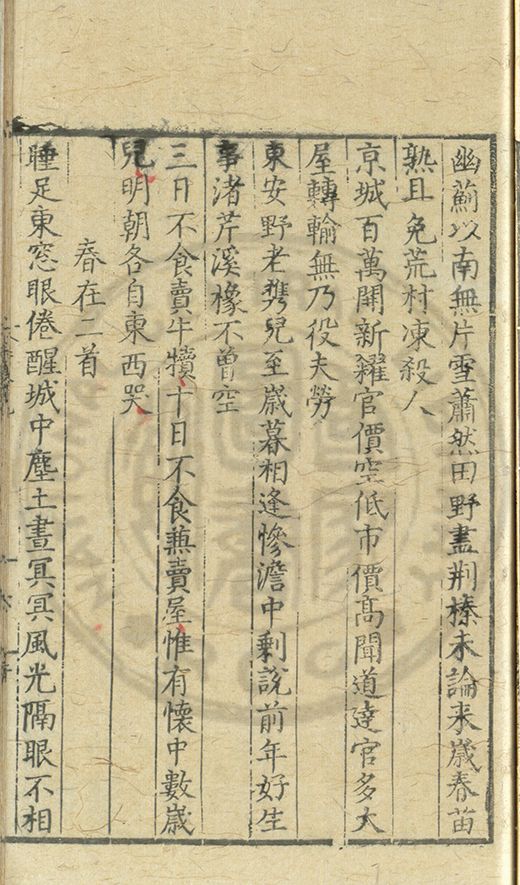 幽薊以南無片雪蕭然田野盡荆榛未論来歲春苗
熟且免荒村凍殺人
京城百萬開新糴官價空低市價髙聞道達官多大
屋轉輸無乃役夫勞
東安野老携兒至歲暮相逢慘澹中剩說前年好生
事渚芹溪橡不曽空
三日不食賣牛犢十日不食兼賣屋惟有懐中數歲
兒明朝各自東西哭
春在二首
睡足東窓眼倦醒城中塵土晝冥冥風光隔眼不相